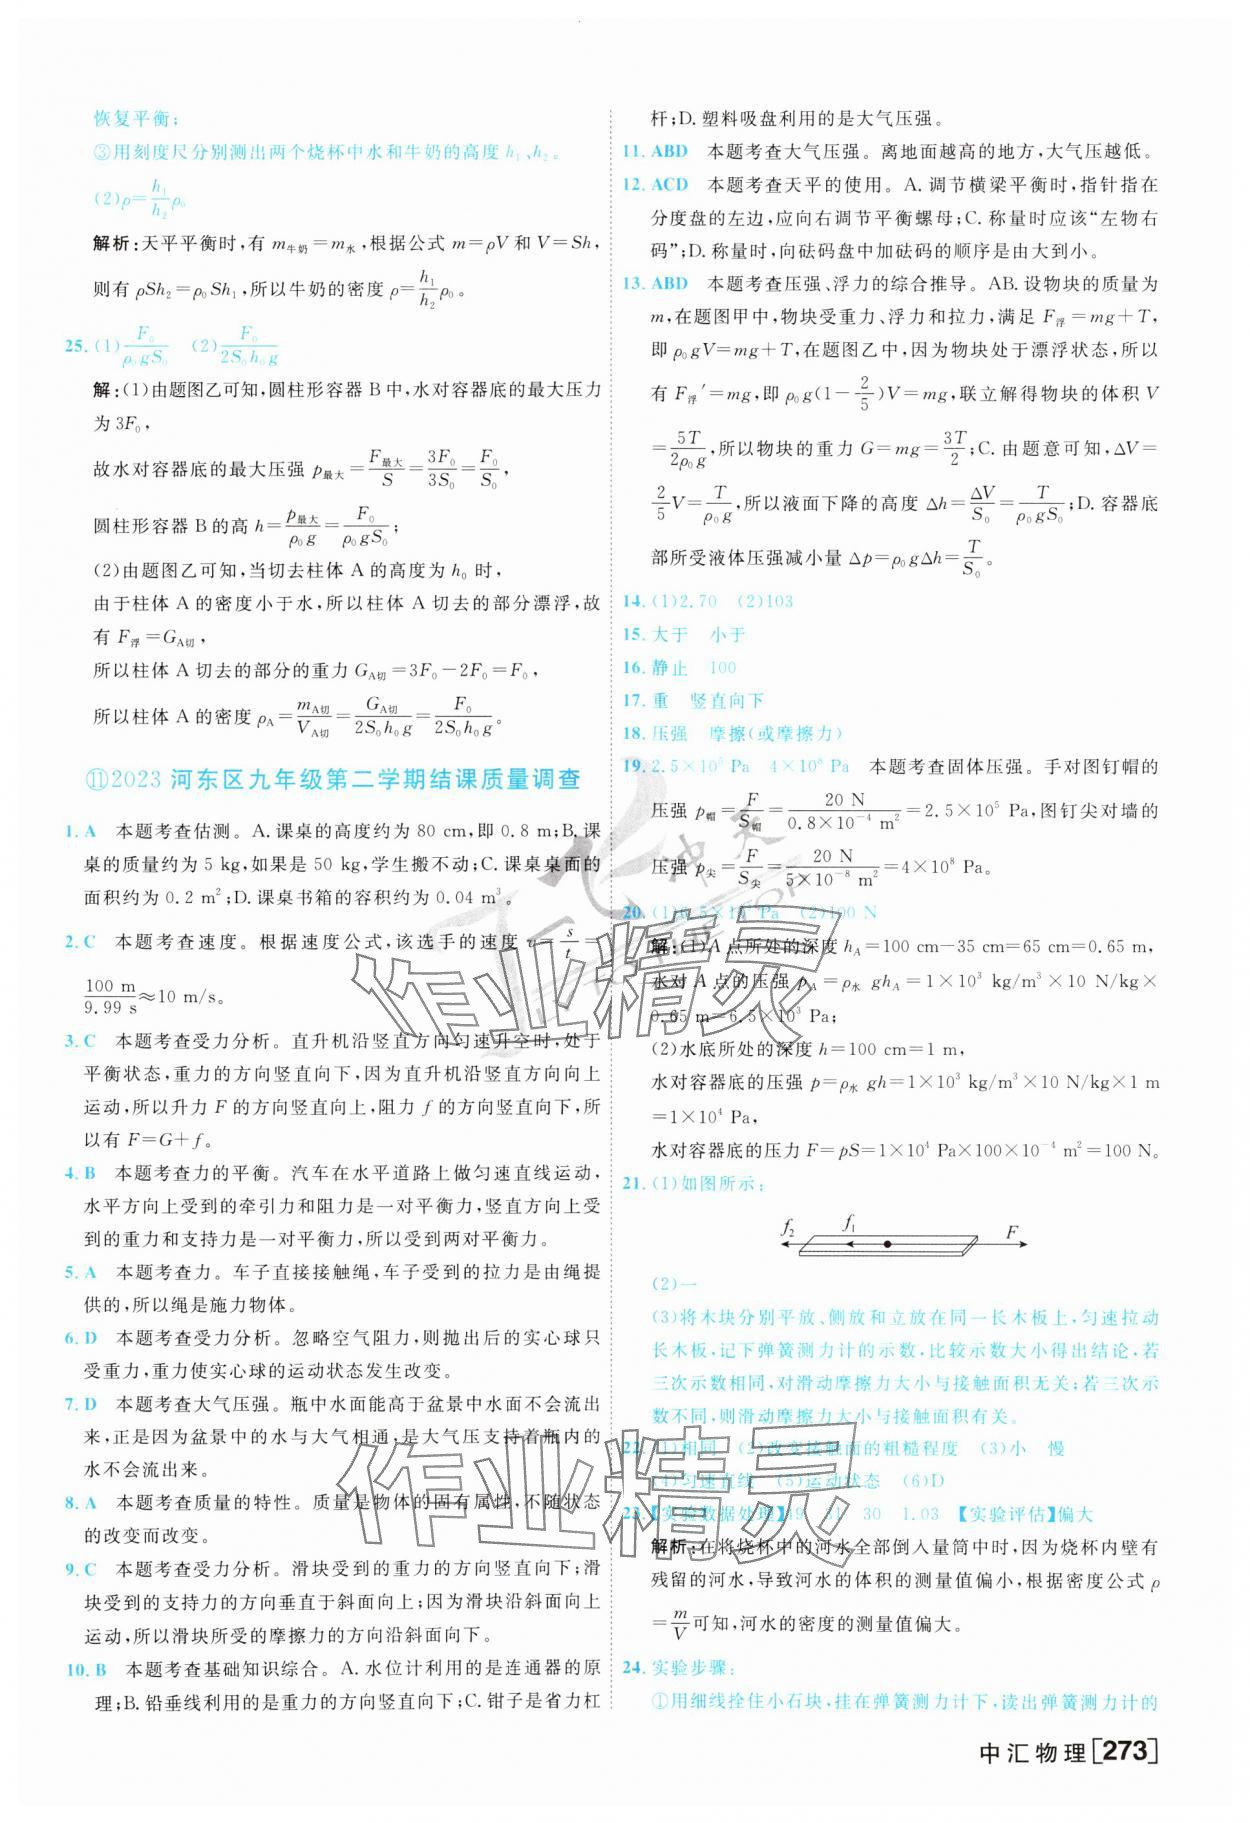 恢复平衡;
③用刻度尺分别测出两个烧杯中水和牛奶的高度 h₁、h₂。
(2)ρ=h₁/h₂ρ₀
解析:天平平衡时,有 m牛奶=m水,根据公式 m=ρV 和 V=Sh,
则有 ρSh₂=ρ₀Sh₁,所以牛奶的密度 ρ=h₁/h₂ρ₀。
25. (1)F₀/ρ₀gS₀ (2)F₀/2S₀h₀g
解:(1)由题图乙可知,圆柱形容器 B 中,水对容器底的最大压力
为 3F₀,
故水对容器底的最大压强 p最大=F最大/S=3F₀/3S₀=F₀/S₀,
圆柱形容器 B 的高 h=p最大/ρ₀g=F₀/ρ₀gS₀;
(2)由题图乙可知,当切去柱体 A 的高度为 h₀ 时,
由于柱体 A 的密度小于水,所以柱体 A 切去的部分漂浮,故
有 F浮=GA切,
所以柱体 A 切去的部分的重力 GA切=3F₀-2F₀=F₀,
所以柱体 A 的密度 ρA=mA切/VA切=GA切/2S₀h₀g=F₀/2S₀h₀g。
⑪2023 河东区九年级第二学期结课质量调查
1. A 本题考查估测。A.课桌的高度约为 80 cm,即 0.8 m;B.课
桌的质量约为 5 kg,如果是 50 kg,学生搬不动;C.课桌桌面的
面积约为 0.2 m²;D.课桌书箱的容积约为 0.04 m³。
2. C 本题考查速度。根据速度公式,该选手的速度 v=s/t=
100 m/9.99 s≈10 m/s。
3. C 本题考查受力分析。直升机沿竖直方向匀速升空时,处于
平衡状态,重力的方向竖直向下,因为直升机沿竖直方向向上
运动,所以升力 F 的方向竖直向上,阻力 f 的方向竖直向下,所
以有 F=G+f。
4. B 本题考查力的平衡。汽车在水平道路上做匀速直线运动,
水平方向上受到的牵引力和阻力是一对平衡力,竖直方向上受到
的重力和支持力是一对平衡力,所以受到两对平衡力。
5. A 本题考查力。车子直接接触绳,车子受到的拉力是由绳提
供的,所以绳是施力物体。
6. D 本题考查受力分析。忽略空气阻力,则抛出后的实心球只
受重力,重力使实心球的运动状态发生改变。
7. D 本题考查大气压强。瓶中水面能高于盆景中水面不会流出
来,正是因为盆景中的水与大气相通,是大气压支持着瓶内的
水不会流出来。
8. A 本题考查质量的特性。质量是物体的固有属性,不随状态
的改变而改变。
9. C 本题考查受力分析。滑块受到的重力的方向竖直向下;滑
块受到的支持力的方向垂直于斜面向上;因为滑块沿斜面向下
运动,所以滑块所受的摩擦力的方向沿斜面向下。
10. B 本题考查基础知识综合。A.水位计利用的是连通器的原
理;B.铅垂线利用的是重力的方向竖直向下;C.钳子是省力杠
杆;D.塑料吸盘利用的是大气压强。
11. ABD 本题考查大气压强。离地面越高的地方,大气压越低。
12. ACD 本题考查天平的使用。A.调节横梁平衡时,指针指在
分度盘的左边,应向右调节平衡螺母;C.称量时应该“左物右
码”;D.称量时,向砝码盘中加砝码的顺序是由大到小。
13. ABD 本题考查压强、浮力的综合推导。AB.设物块的质量为
m,在题图甲中,物块受重力、浮力和拉力,满足 F浮=mg+T,
即 ρ₀gV=mg+T,在题图乙中,因为物块处于漂浮状态,所以
有 F浮′=mg,即 ρ₀g(1-2/5)V=mg,联立解得物块的体积 V
=5T/2ρ₀g,所以物块的重力 G=mg=3T/2;C.由题意可知,ΔV=
2/5V=T/ρ₀g,所以液面下降的高度 Δh=ΔV/S₀=T/ρ₀gS₀;D.容器底
部所受液体压强减小量 Δp=ρ₀gΔh=T/S₀。
14. (1)2.70 (2)103
15. 大于 小于
16. 静止 100
17. 重 竖直向下
18. 压强 摩擦(或摩擦力)
19. 2.5×10⁵ Pa 4×10⁸ Pa 本题考查固体压强。手对图钉帽的
压强 p帽=F/S帽=20 N/0.8×10⁻⁴ m²=2.5×10⁵ Pa,图钉尖对墙的
压强 p尖=F/S尖=20 N/5×10⁻⁸ m²=4×10⁸ Pa。
20. (1)6.5×10³ Pa (2)100 N
解:(1)A 点所处的深度 hA=100 cm-35 cm=65 cm=0.65 m,
水对 A 点的压强 pA=ρ水 ghA=1×10³ kg/m³×10 N/kg×
0.65 m=6.5×10³ Pa;
(2)水底所处的深度 h=100 cm=1 m,
水对容器底的压强 p=ρ水 gh=1×10³ kg/m³×10 N/kg×1 m
=1×10⁴ Pa,
水对容器底的压力 F=pS=1×10⁴ Pa×100×10⁻⁴ m²=100 N。
21. (1)如图所示:
f₂ f₁ F
(2)一
(3)将木块分别平放、侧放和立放在同一长木板上,匀速拉动
长木板,记下弹簧测力计的示数,比较示数大小得出结论,若
三次示数相同,则滑动摩擦力大小与接触面积无关;若三次
示数不同,则滑动摩擦力大小与接触面积有关。
22. (1)相同 (2)改变接触面的粗糙程度 (3)小 慢
(4)匀速直线 (5)运动状态 (6)D
23. 【实验数据处理】49 31 30 1.03 【实验评估】偏大
解析:在将烧杯中的河水全部倒入量筒中时,因为烧杯内壁有
残留的河水,导致河水的体积的测量值偏小,根据密度公式 ρ
=m/V可知,河水的密度的测量值偏大。
24. 实验步骤:
①用细线拴住小石块,挂在弹簧测力计下,读出弹簧测力计的
中汇物理[273]
作业精灵
作业精灵